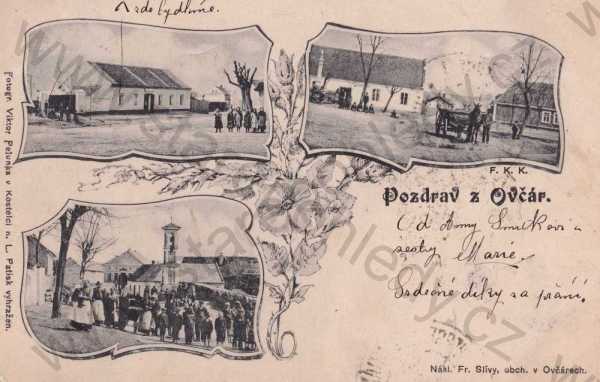 zde bydlíme.
Fotogr. Viktor Petunka v Kostelci n. L. Patisk vyhražen.
F. K. K.
Pozdrav z Ovčár.
Od Anny
sestry Marie.
Srdečné díky za přání.
Nákl. Fr. Slívy, obch. v Ovčárech.